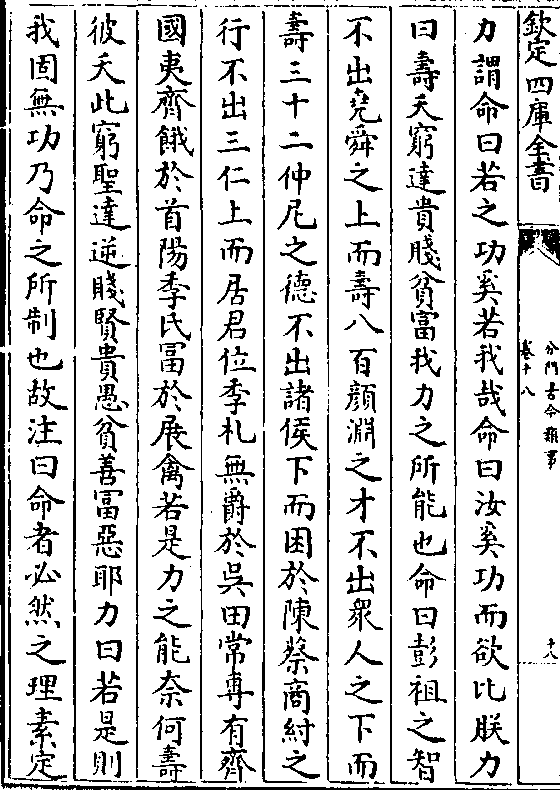 欽定四庫全書
分門古今類事
卷十八
十八
力謂命曰若之功奚若我哉命曰汝奚功而欲比朕力
曰壽夭窮達貴賤貧富我力之所能也命曰彭祖之智
不出堯舜之上而壽八百顔淵之才不出衆人之下而
壽三十二仲尼之德不出諸侯下而困於陳蔡商紂之
行不出三仁上而居君位季札無爵於吳田常専有齊
國夷齊餓於首陽季氏冨於展禽若是力之能奈何壽
彼夭此窮聖達逆賤賢貴愚貧善冨惡耶力曰若是則
我固無功乃命之所制也故注曰命者必然之理素定